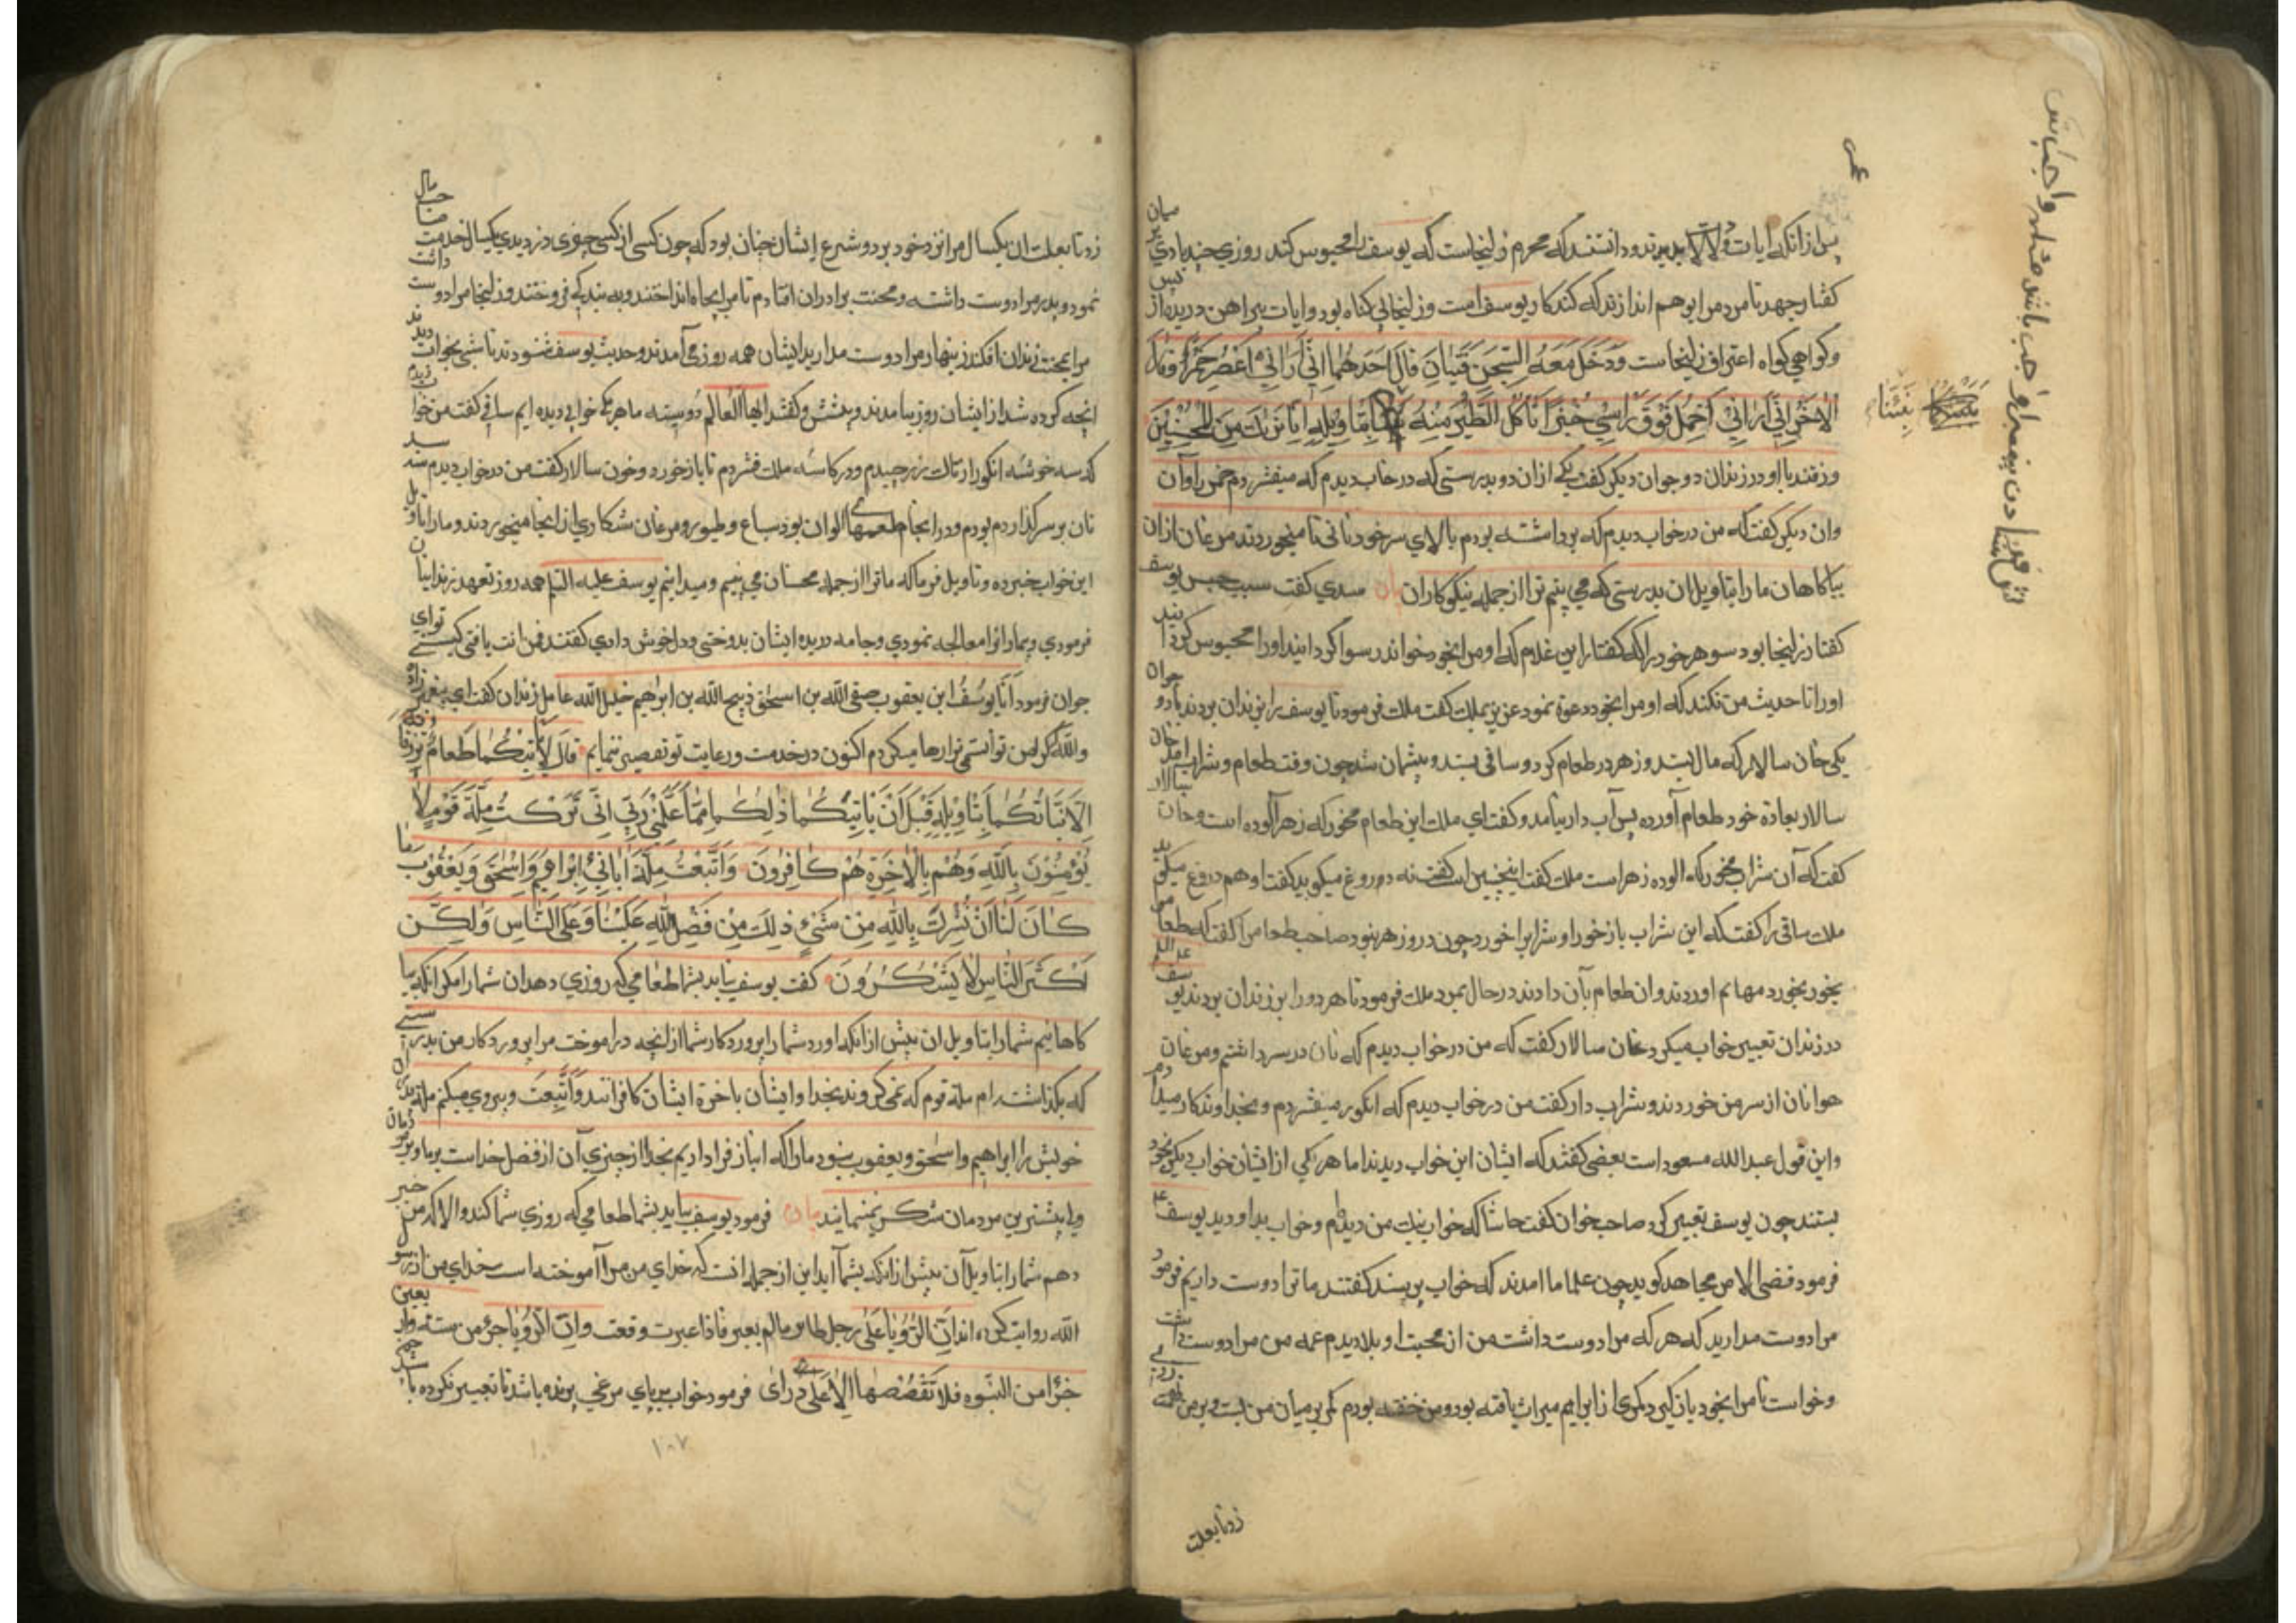 پس از انکه ایات و دلالات بدیدند و دانستند که مجرم زلیخاست که یوسف را محبوس کند روزی چند بادی میان
کفتار جهد تا مردمرا بوهم اندازند که کنه کار یوسف است و زلیخا بی کناه بود و ایات پیراهن دریده از پس
و کواهی کواه اعتراف زلیخاست وَدَخَلَ مَعَهُ السِّجْنَ فَتَيَانِ قَالَ اَحَدُهُمَا اِنِّي اَرَانِي اَعْصِرُ خَمْرًا وَقَالَ
الْاٰخَرُ اِنِّي اَرَانِي اَحْمِلُ فَوْقَ رَاْسِي خُبْزًا تَاْكُلُ الطَّيْرُ مِنْهُ بِتَاْوِيلِهِ اِنَّا نَرٰىكَ مِنَ الْمُحْسِنِينَ
نَبِّئْنَا
و رفتند با او در زندان دو جوان دیکر کفت یکی ازان دو بدرستی که در خاب دیدم که میفشردم خمر را و ان
وان دیکر کفت که من در خواب دیدم که برداشته بودم بالای سر خود نانی تا میخوردند مرغان ازان
بیاکاهان ما را بتاویل ان بدرستی که می بینم ترا از جمله نیکوکاران سدی کفت سبب حبس یوسف
کفتار زلیخا بود سوهر خود را که کفتا این غلام که او مرا بخود خواند رسوا کردانید اورا محبوس کردانید
اورا تا حدیث من نکند که او مرا بخود دعوة نمود عزیز بملک کفت ملک فرمود تا یوسف را بزندان بردند با دو جوان
یکی خان سالار که مال بستد و زهر در طعام کرد و ساقی بستد و پشیمان شد چون وقت طعام و شراب امد خان
سالار بعادة خود طعام آورده پس آب دار بیامد و کفت ای ملک این طعام مخور که زهر آلوده است و خان سالار
کفت که آن شراب مخور که الوده زهر است ملک کفت اینچنین است کفت نه دروغ میکوید کفت او هم دروغ میکوید
ملک ساقی را کفت که این شراب باز خور او شرابرا خورد چون درو زهر نبود صاحب طعامرا کفت که طعام
بخور نخورد مهایم اوردند وان طعام بآن دادند در حال بمرد ملک فرمود تا هر دو را بزندان بردند یوسف علیه السلام
در زندان تعبیر خواب میکرد خان سالار کفت که من در خواب دیدم که نان در سر داشتم و مرغان
هوا نان از سر من خوردند و شراب دار کفت من در خواب دیدم که انکور میفشردم و بخداوندکار میدادم
و این قول عبدالله مسعود است بعضی کفتند که ایشان این خواب دیدند اما هر یکی از ایشان خواب دیکر بخود
بستند چون یوسف تعبیر کرد صاحب خوان کفت حاشا که خواب نیک من دیدم و خواب بد او دید یوسف علیه
فرمود قضی الامر مجاهد کوید چون علاما امدند که خواب پرسند کفتند ما ترا دوست داریم فرمود
مرا دوست مدارید که هر که مرا دوست داشت من از محبت او بلا دیدم عمه من مرا دوست داشت
و خواست تا مرا بخود باز کیرد کمری از ابراهیم میراث یافته بود و من خفته بودم کمر بر میان من بست و بر من
زد تا بعلت
زد تا بعلت ان یکسال مرا نزد خود برد و شرع ایشان چنان بود که چون کسی از کسی چیزی دزدیدی یکسال خدمت صاحب مال
نمود و پدر مرا دوست داشته و محنت برادران افتادم تا مرا بچاه انداختند و به بندکی فروختند و زلیخا مرا دوست داشت
مرا بمحنت زندان افکند زینهار مرا دوست مدارید ایشان همه روز می آمدند و حدیث یوسف شنودند تا شبی بخواب دیدند
انچه کرده شد از ایشان روز بیامدند و بنشتند و کفتند ایها العالم دوسته ما هر یکی خوابی دیده ایم ساقی کفت من خواب دیدم
که سه خوشه انکور از تاک زر چیدم و در کاسه ملک فشردم تا باز خورد و خون سالار کفت من در خواب دیدم سه سبد
نان بر سر کذاردم بودم و در انجا طعمهای الوان بود سباع و طیور و مرغان شکاری از انجا میخوردند و مارا بتاویل
این خواب خبر ده و تاویل فرما که ما ترا از جمله محسنان می بینیم و میدانیم یوسف علیه السلام همه روز تعهد زندانیان
فرمودی و بیمارانرا معالجه نمودی و جامه دریده ایشان بدوختی و دلخوش دادی کفتند من انت یا فتی کیستی تو ای
جوان فرمود اَنَا يُوسُفُ ابن یعقوب صفی الله بن اسحق ذبیح الله بن ابراهیم خلیل الله عامل زندان کفت ای پیغمبرزاده
والله اکر من توانستمی ترا رها میکردم اکنون در خدمت و رعایت تو تقصیر ننمایم قَالَ لَا يَاْتِيكُمَا طَعَامٌ تُرْزَقَانِهِ
اِلَّا نَبَّاْتُكُمَا بِتَاْوِيلِهِ قَبْلَ اَنْ يَاْتِيَكُمَا ذٰلِكُمَا مِمَّا عَلَّمَنِي رَبِّي اِنِّي تَرَكْتُ مِلَّةَ قَوْمٍ لَا
يُؤْمِنُونَ بِاللّٰهِ وَهُمْ بِالْاٰخِرَةِ هُمْ كَافِرُونَ وَاتَّبَعْتُ مِلَّةَ اٰبَائِي اِبْرَاهِيمَ وَاِسْحٰقَ وَيَعْقُوبَ مَا
كَانَ لَنَا اَنْ نُشْرِكَ بِاللّٰهِ مِنْ شَيْءٍ ذٰلِكَ مِنْ فَضْلِ اللّٰهِ عَلَيْنَا وَعَلَى النَّاسِ وَلٰكِنَّ
اَكْثَرَ النَّاسِ لَا يَشْكُرُونَ کفت یوسف نیاید بشما طعامی که روزی دهدان شمارا مکر انکه بیا
کاهانیم شمارا بتاویل ان پیش از انکه اورد شمارا پروردکار شما از انچه دراموخت مرا پروردکار من بدرستی
که بکذاشته ام ملة قوم که نمی کروند بخدا و ایشان باخرة ایشان کافرانند وَاتَّبَعْتُ و پیروی میکنم ملة پدران
خویش را ابراهیم و اسحق و یعقوب نبود مارا که انباز فرا داریم بخدا از چیزی آن از فضل خداست بر ما و بر مردمان
ولا بیشترین مردمان شکر نمینمایند فرمود یوسف نیاید بشما طعامی که روزی شما کند والا که من خبر
دهم شمارا بتاویل آن پیش از انکه بشما آید این از جمله انست که خدای من مرا آموخته است خدای من از رسول
الله روایت کرده اند ان الرؤیا علی رجل طایر مالم یعبر فاذا عبرت وقعت و ان الرؤیا جزء من سته و اربعین
جزأ من النبوه فلا تقصصها الا علی ذی رای فرمود خواب بر پای مرغی پرنده باشد تا تعبیر نکرده باشند
۱۰۷